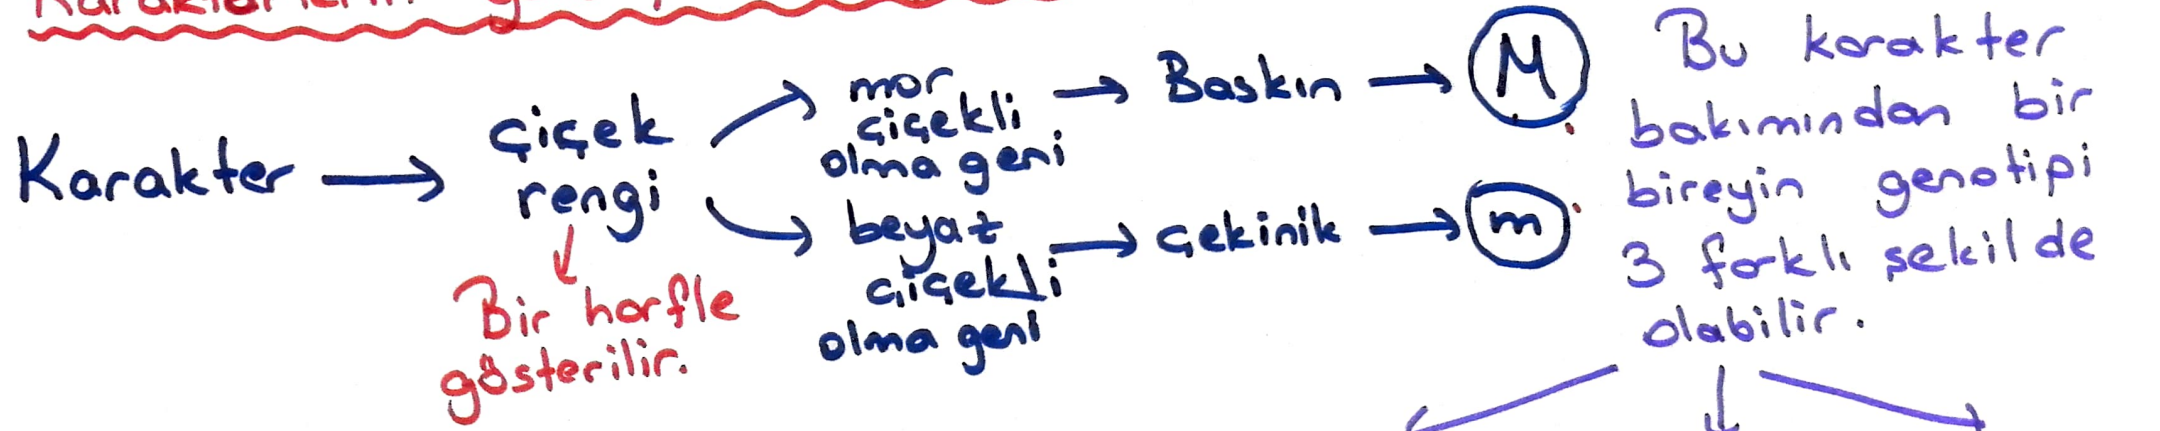 Karakter → çiçek rengi
Bir harfle
gösterilir.
mor
çiçekli
olma geni → Baskın → M
beyaz
çiçekli
olma geni → çekinik → m
Bu karakter
bakımından bir
bireyin genotipi
3 farklı şekilde
olabilir.